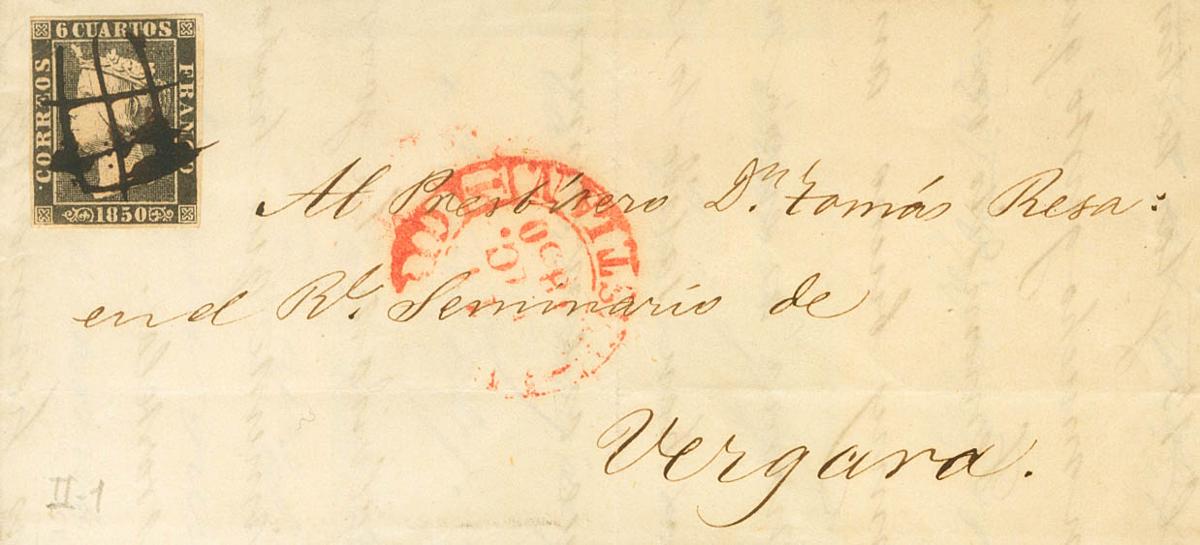 6 CUARTOS
CORREOS
FRANCO
1850
Al Presbítero Dn. tomás Resa:
en el Rl. Seminario de
Vergara.
II-1